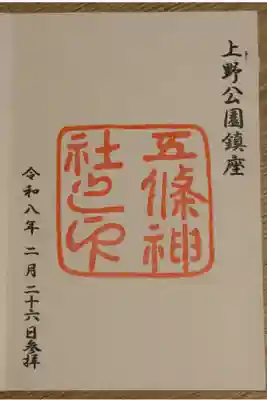 上野公園鎮座
五條神
社之印
令和八年 二月 二十六日参拝